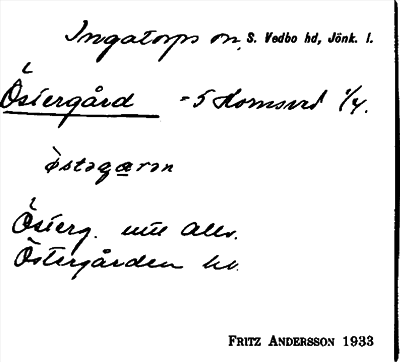 Ingatorps sn. S. Vedbo hd, Jönk. l.
Östergård - 5 Homsvrd ¼.
östəgæ̀rən
Österg. allv.
Östergården
FRITZ ANDERSSON 1933